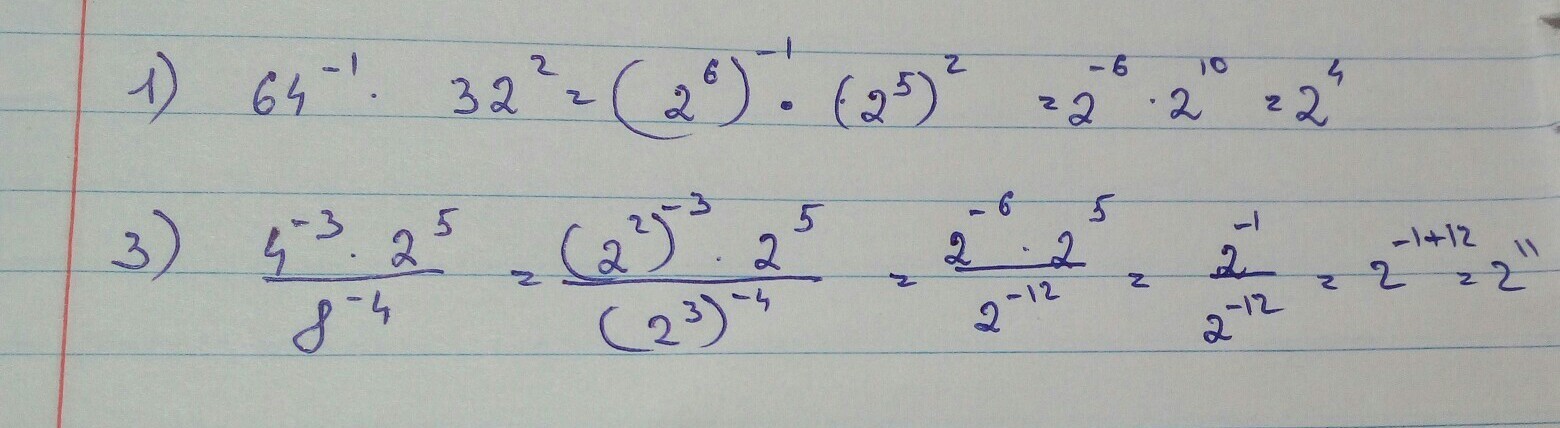 1) 64⁻¹ · 32² = (2⁶)⁻¹ · (2⁵)² = 2⁻⁶ · 2¹⁰ = 2⁴
3) (4⁻³ · 2⁵)/(8⁻⁴) = ((2²)⁻³ · 2⁵)/((2³)⁻⁴) = (2⁻⁶ · 2⁵)/(2⁻¹²) = 2⁻¹/2⁻¹² = 2⁻¹⁺¹² = 2¹¹